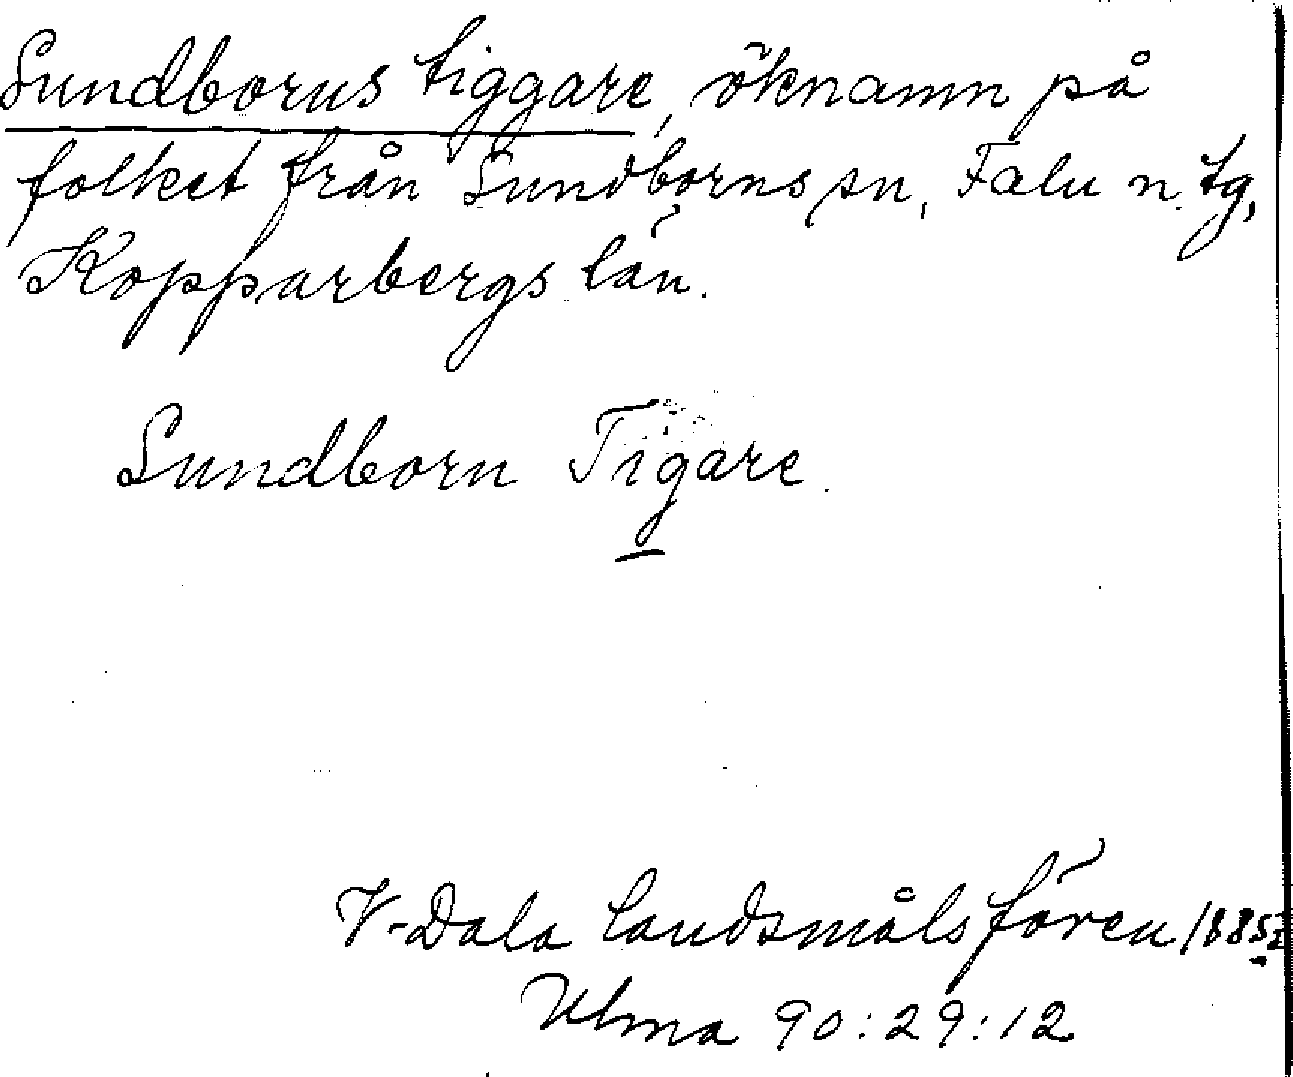 Sundborns tiggare, öknamn på
folket från Sundborns sn, Falu n. tg,
Kopparbergs län.
Sundborn Tigare.
V-Dala landsmålsfören
Ulma 90:29:12